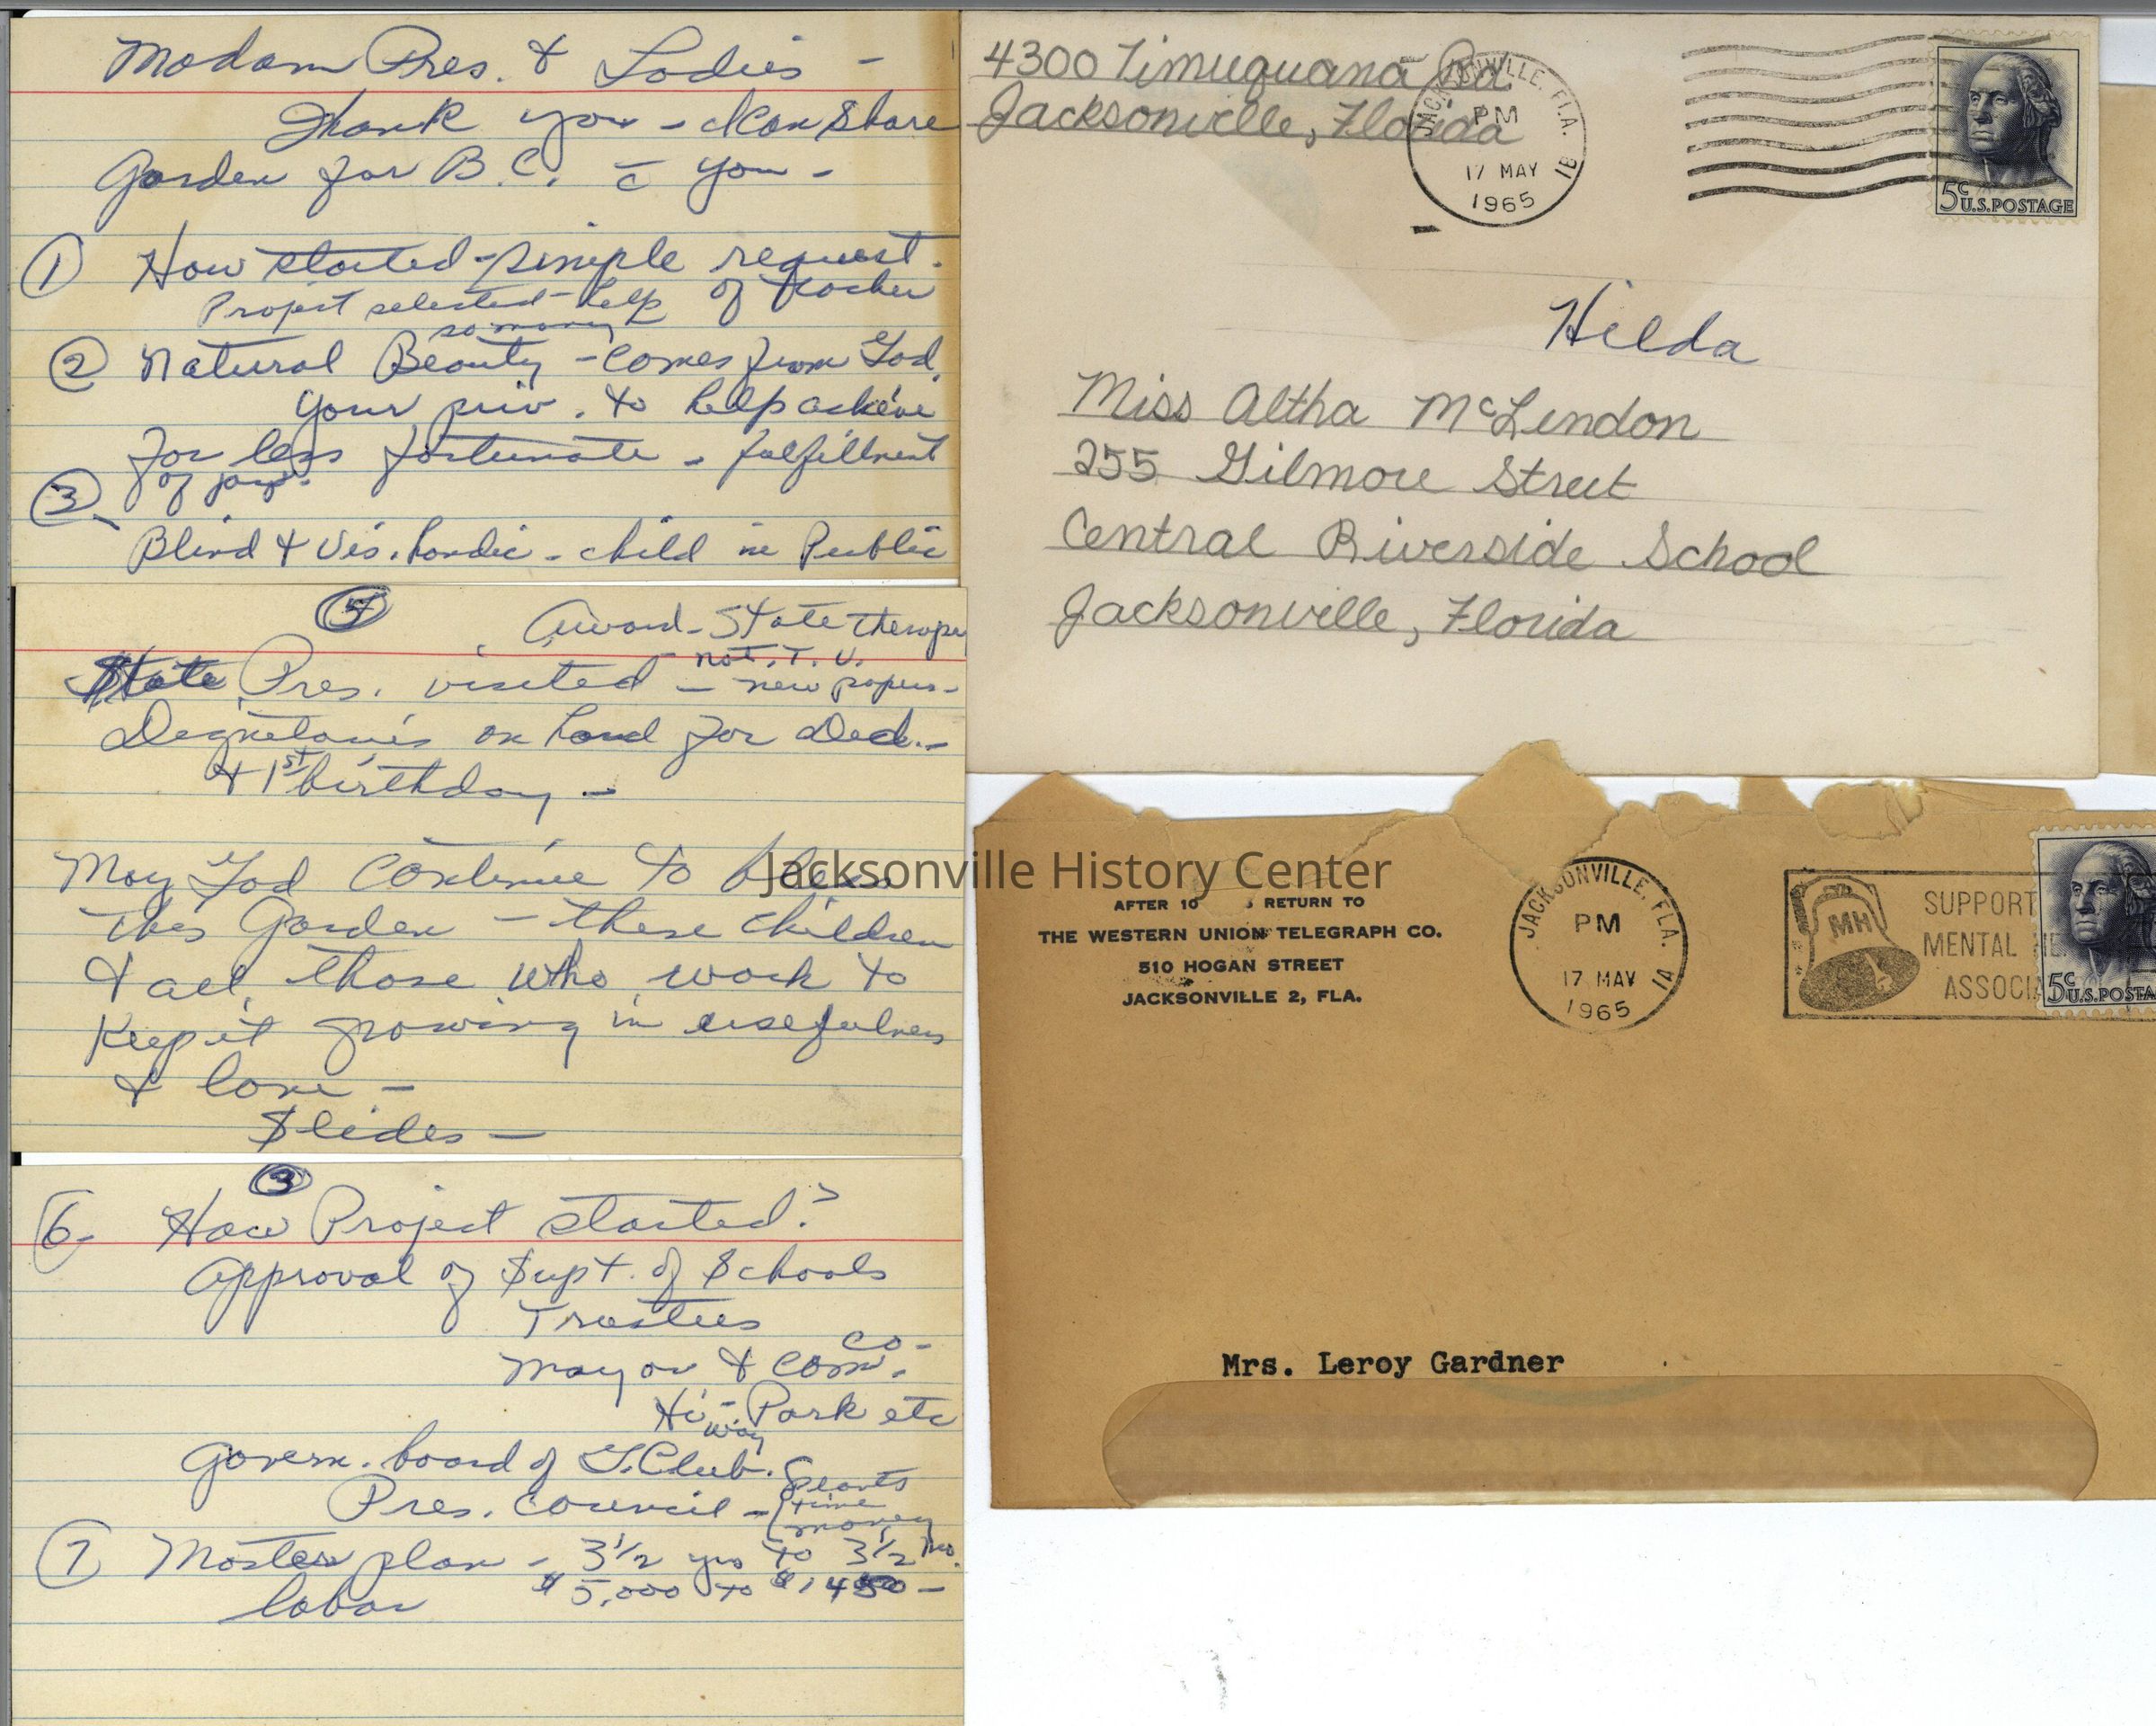 Madam Pres. & Ladies -
Thank you - I can share
Garden for B.C. c̄ you -
① How started - simple request
of teacher
Project selected - help
so many
② Natural Beauty - comes from God.
your priv. to help achieve
for less fortunate - fulfillment
of joy.
③
Blind & Vis. handic - child in Public
⑤
Award - State therape
nat. T.V.
State Pres. visited - new papers -
Dignetaries on hand for Ded. -
& 1st birthday -
May God continue to bless
this Garden - these children
& all those who work to
keep it growing in usefulness
& love -
Slides -
③
6- How Project started?
Approval of Supt. of Schools
Trustees
co-
Mayor & Com.
Hi-way Park etc
Govern. board of G. Club.
Pres. Council - plants
time
money
⑦ Master plan - 3 1/2 yrs to 3 1/2 mo.
labor $5,000 to $1,450 -
4300 Timuquana Rd.
Jacksonville, Florida
JACKSONVILLE, FLA.
PM
17 MAY
1965
1B
5c U.S. POSTAGE
Hilda
Miss Altha McLendon
255 Gilmore Street
Central Riverside School
Jacksonville, Florida
Jacksonville History Center
AFTER 10 RETURN TO
THE WESTERN UNION TELEGRAPH CO.
510 HOGAN STREET
JACKSONVILLE 2, FLA.
JACKSONVILLE, FLA.
PM
17 MAY
1965
1A
MH
SUPPORT
MENTAL HE
ASSOCIA
5c U.S. POSTA
Mrs. Leroy Gardner